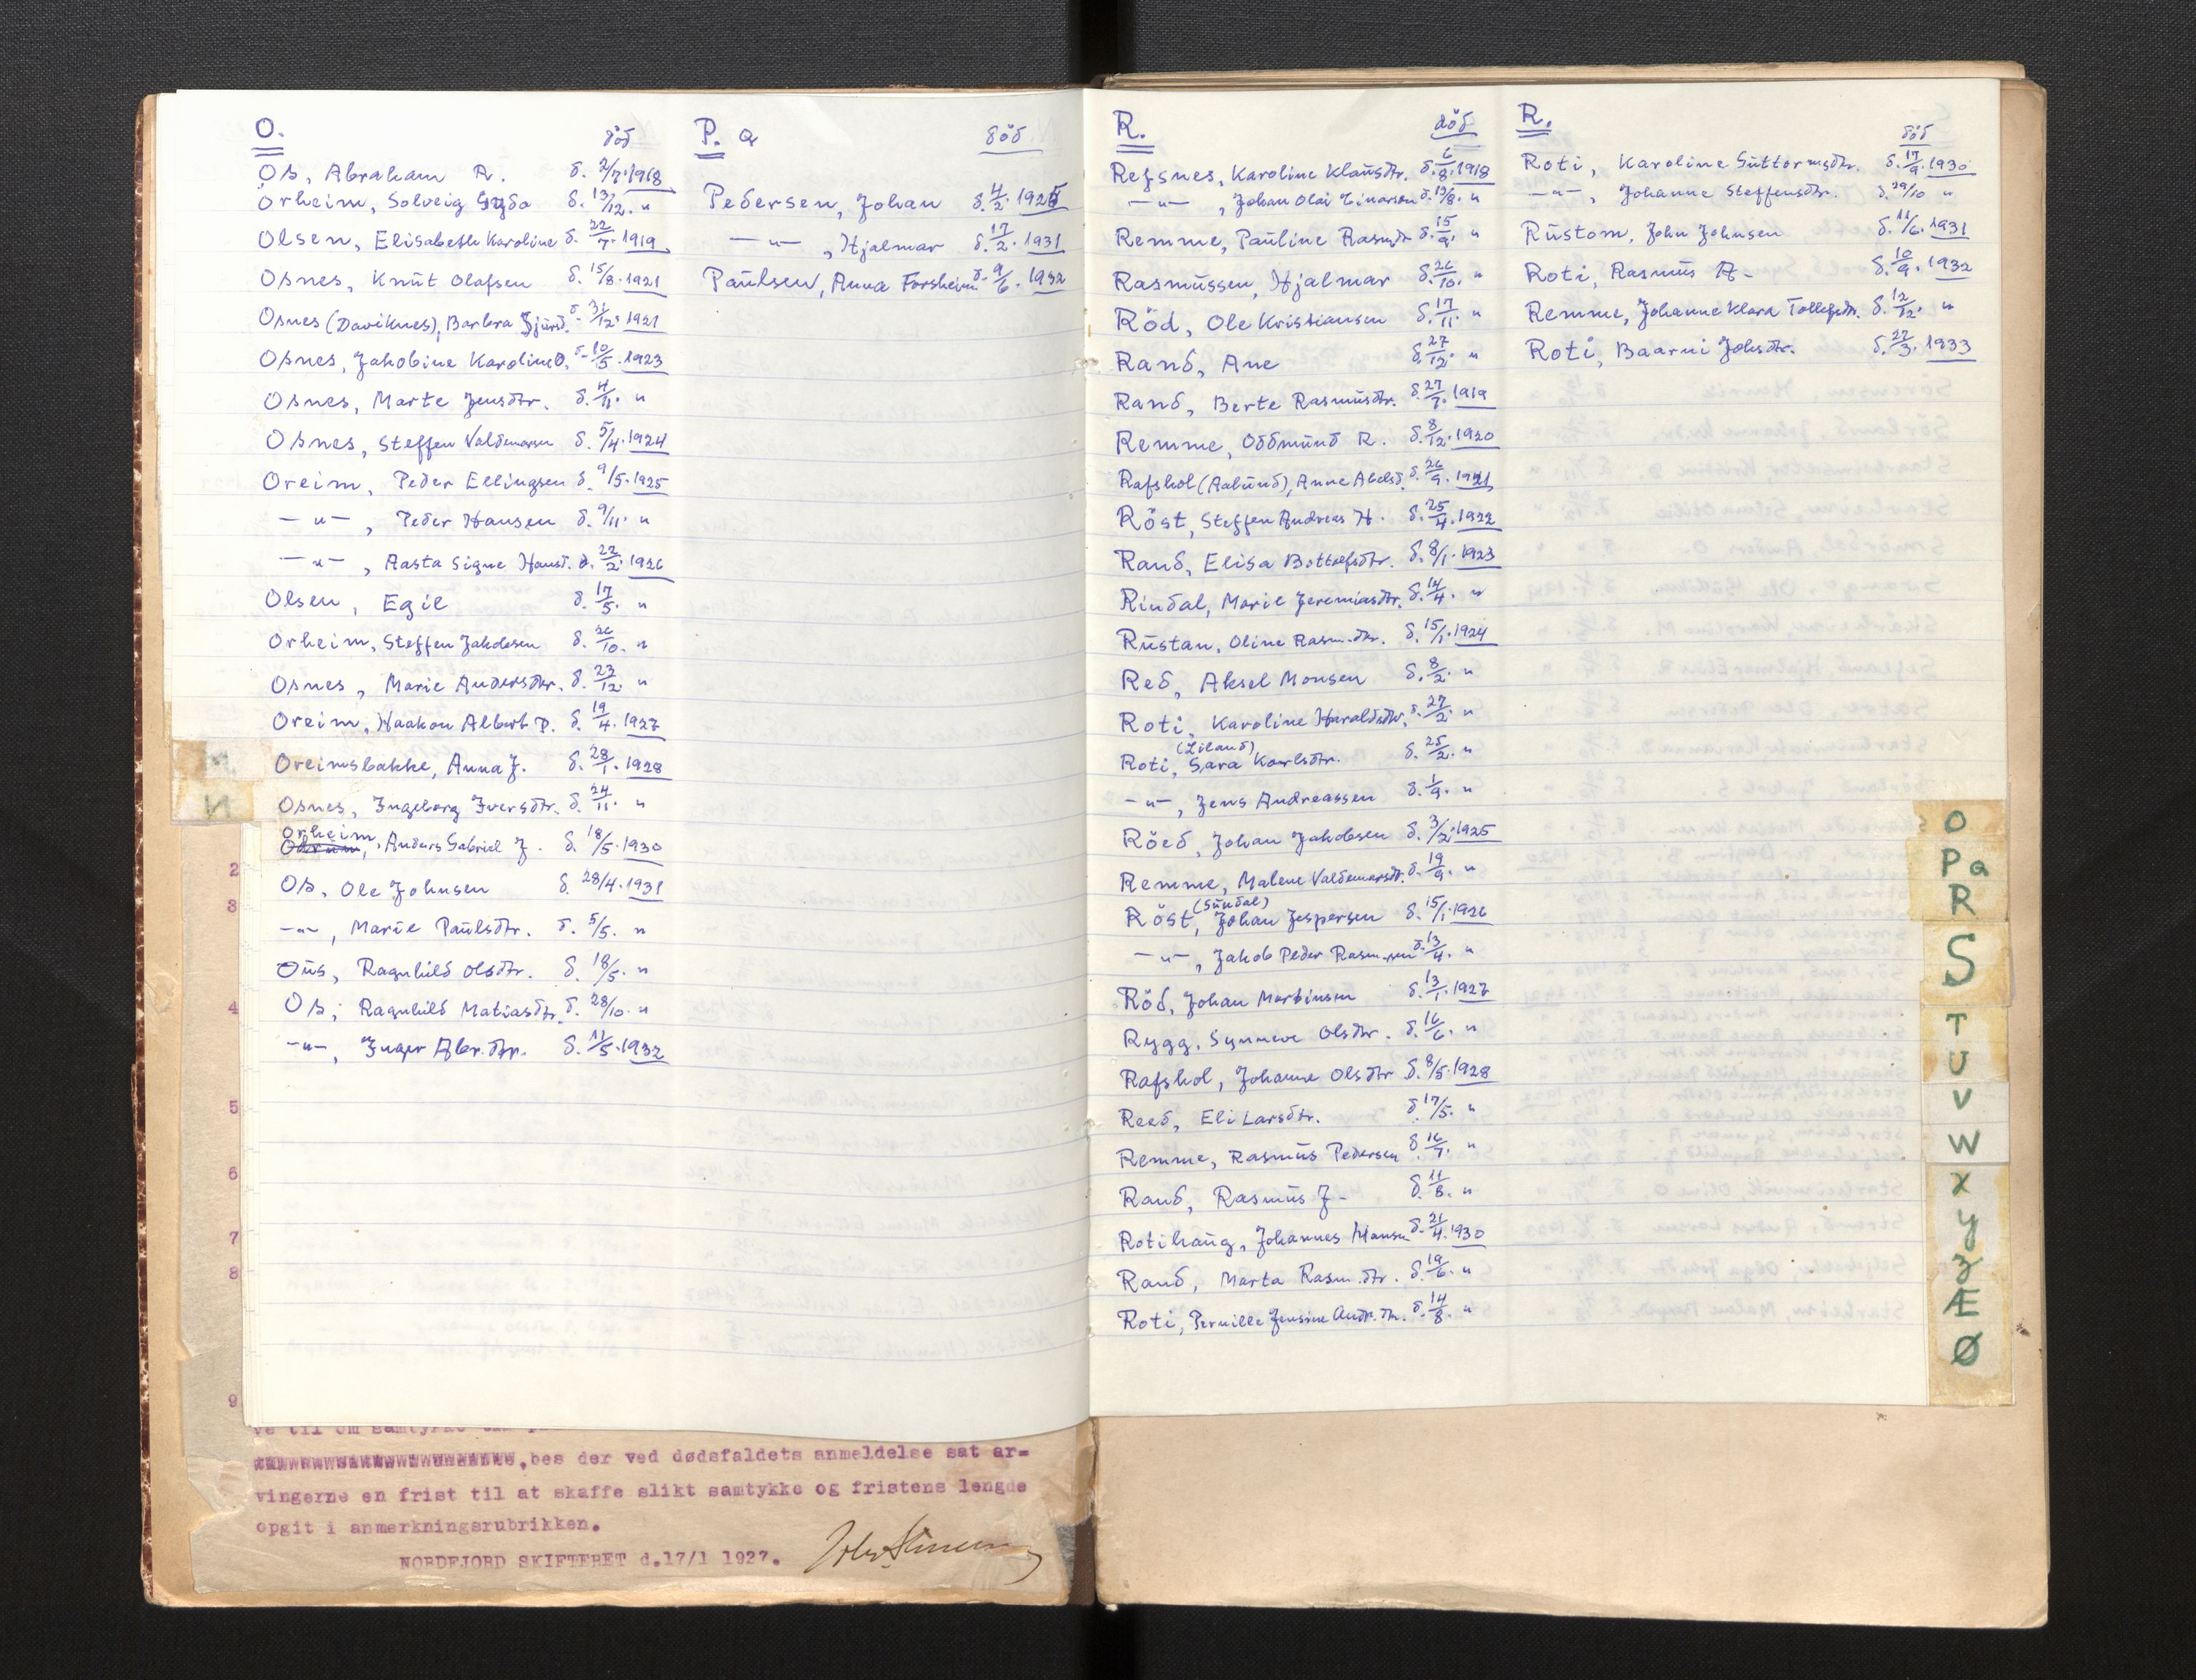 O.
död
Os, Abraham R. d. 2/7. 1918
Orheim, Solveig Syda d. 13/12. "
Olsen, Elisabeth Karoline d. 22/7. 1919
Osnes, Knut Olafsen d. 15/8. 1921
Osnes (Daviknes), Barbra d. 31/12. 1921
Osnes, Jakobine Karoline O. d. 10/5. 1923
Osnes, Marte Jensdtr. d. 4/11. "
Osnes, Steffen Valdemarsen d. 5/4. 1924
Oreim, Peder Ellingsen d. 9/5. 1925
— " — , Peder Hansen d. 9/11. "
— " — , Aasta Signe Hansd. d. 22/2. 1926
Olsen, Egil d. 17/5. "
Orheim, Steffen Jakobsen d. 26/10. "
Osnes, Marie Andersdtr. d. 23/12. "
Oreim, Haakon Albert P. d. 19/4. 1927
Oreimsbakke, Anna J. d. 28/1. 1928
Osnes, Ingeborg Iversdtr. d. 24/11. "
Orheim, Anders Gabriel J. d. 18/5. 1930
Os, Ole Johnsen d. 28/4. 1931
— " — , Marie Paulsdtr. d. 5/5. "
Ous, Ragnhild Olsdtr. d. 18/5. "
Os, Ragnhild Matiasdtr. d. 28/10. "
— " — , Inger Abr.dtr. d. 11/5. 1932
P. Q
död
Pedersen, Johan d. 4/2. 1925
— " — , Hjalmar d. 17/2. 1931
Paulsen, Anna Forsheim d. 9/6. 1932
R.
död
Refsnes, Karoline Klausdtr. d. 6/8. 1918
— " — , Johan Olai Einarsen d. 13/8. "
Remme, Pauline Rasmdtr d. 15/9. "
Rasmussen, Hjalmar d. 26/10. "
Röd, Ole Kristiansen d. 17/11. "
Rand, Ane d. 27/12. "
Rand, Berte Rasmusdtr. d. 27/7. 1919
Remme, Oddmund R. d. 8/12. 1920
Rafshol (Aalund), Anne Abelsd. d. 26/9. 1921
Röst, Steffen Andreas H. d. 25/4. 1922
Rand, Elisa Bottolfsdtr. d. 8/1. 1923
Rindal, Marie Jeremiasdtr. d. 14/4. "
Rustan, Oline Rasm.dtr. d. 15/1. 1924
Red, Aksel Monsen d. 8/2. "
Roti, Karoline Haraldsdtr. d. 27/2. "
(Liland)
Roti, Sara Karlsdtr. d. 25/2. "
— " — , Jens Andreassen d. 1/9. "
Röed, Johan Jakobsen d. 3/2. 1925
Remme, Malene Valdemarsdt. d. 19/9. "
(Sundal)
Röst, Johan Jespersen d. 15/1. 1926
— " — , Jakob Peder Rasm.sen d. 13/4. "
Röd, Johan Martinsen d. 13/1. 1927
Rygg, Synneve Olsdtr. d. 16/6. "
Rafshol, Johanne Olsdtr d. 8/5. 1928
Reed, Eli Larsdtr. d. 17/5. "
Remme, Rasmus Pedersen d. 16/7. "
Rand, Rasmus J - d. 11/8. "
Rotihaug, Johannes Hansen d. 21/4. 1930
Rand, Marta Rasm.dtr. d. 19/6. "
Roti, Pernille Jensine Andr.dtr. d. 14/8. "
R.
död
Roti, Karoline Guttormsdtr. d. 17/9. 1930
— " — , Johanne Steffensdtr. d. 29/10 "
Rustom, John Johnsen d. 11/6. 1931
Roti, Rasmus A - d. 10/9. 1932
Remme, Johanne Klara Tollefsdtr. d. 12/12. "
Roti, Baarni Johsdtr. d. 22/3. 1933
N
O
P Q
R
S
T
U
V
W
X
Y
Z
Æ
Ø
2
3
4
5
6
7
8
9
bes der ved dødsfaldets anmeldelse sat ar=
vingerne en frist til at skaffe slikt samtykke og fristens lengde
opgit i anmerkningsrubrikken.
NORDFJORD SKIFTERET d.17/1 1927.